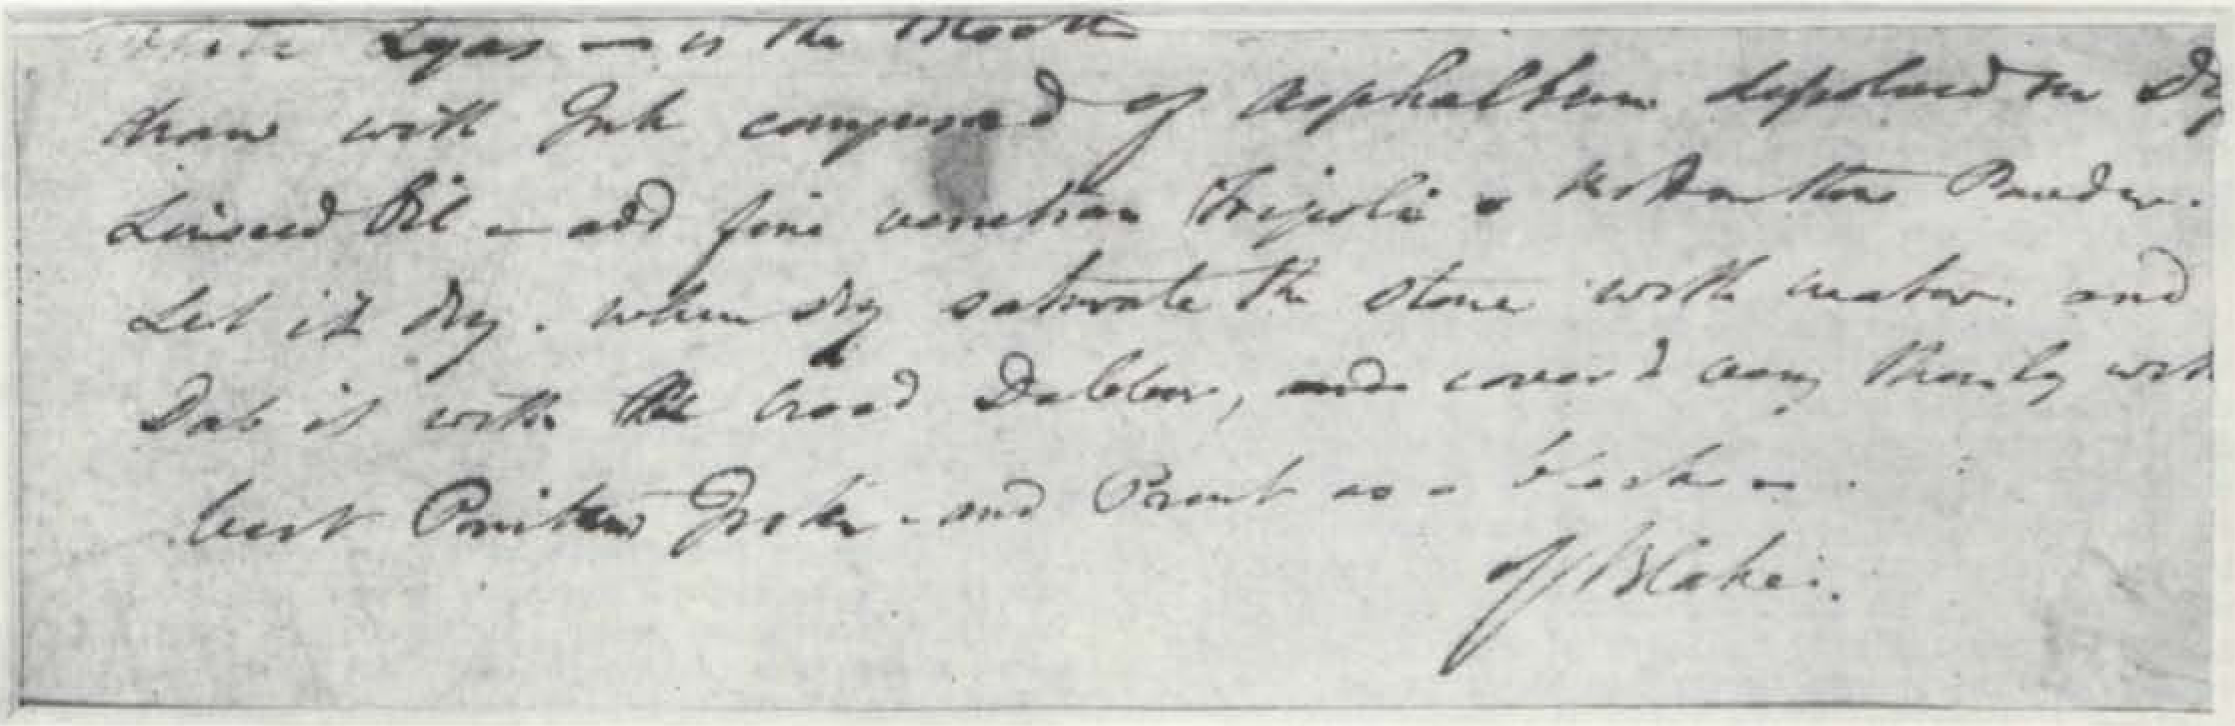 White Lyas — is the Block
draw with Ink composed of asphaltum dissolved in Dry
Linseed Oil — add fine venetian Tripoli & Rotten Stone Powder.
Let it dry. when dry saturate the stone with water and
Dab it with the broad Dabber, and cover it very thinly with
best Printers Ink - and Print as a block —.
of Blake.